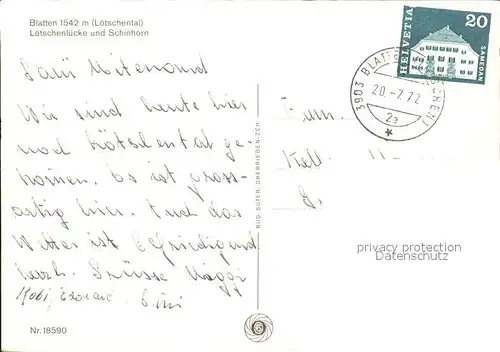 Blatten 1542 m (Lötschental)
Lötschenlücke und Schinhorn
Salü Mitenand
Wir sind heute hier
nach Lötschental ge-
kommen. Es ist gross-
artig hier. Auch das
Wetter ist befriedigend
herzl. Grüsse
Nr. 18590
RUD. SUTER, OBERRIEDEN-ZCH
HELVETIA
20
SAMEDAN
3903 BLATTEN (LÖTSCHEN)
20.-7.72
2a
Fam.
privacy protection